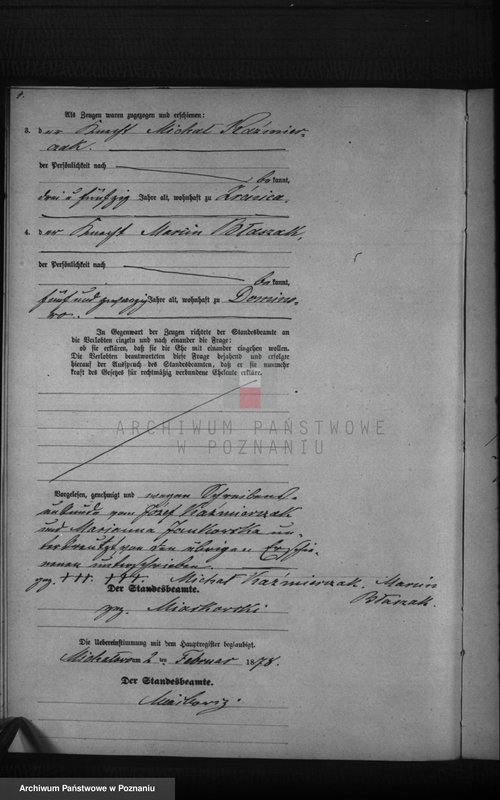 Als Zeugen waren zugezogen und erschienen:
3. der Knecht Michał Kaźmier-
czak.
der Persönlichkeit nach
bekannt,
drei u fünfzig Jahre alt, wohnhaft zu Źrenica.
4. der Knecht Marcin Błaszak,
der Persönlichkeit nach
bekannt,
fünf und zwanzig Jahre alt, wohnhaft zu Domino-
wo.
In Gegenwart der Zeugen richtete der Standesbeamte an
die Verlobten einzeln und nach einander die Frage:
ob sie erklären, daß sie die Ehe mit einander eingehen wollen.
Die Verlobten beantworteten diese Frage bejahend und erfolgte
hierauf der Ausspruch des Standesbeamten, daß er sie nunmehr
kraft des Gesetzes für rechtmäßig verbundene Eheleute erkläre.
ARCHIWUM PAŃSTWOWE
W POZNANIU
Vorgelesen, genehmigt und wegen Schreibens-
unkunde von Józef Kaźmierczak
und Marianna Jankowska un-
terkreuzt von den übrigen Erschie-
nenen unterschrieben.
gez. +++. +++. Michał Kaźmierczak. Marcin
Błaszak.
Der Standesbeamte.
gez.
Die Uebereinstimmung mit dem Hauptregister beglaubigt.
am 2 ten Februar 1878.
Der Standesbeamte.
Archiwum Państwowe w Poznaniu